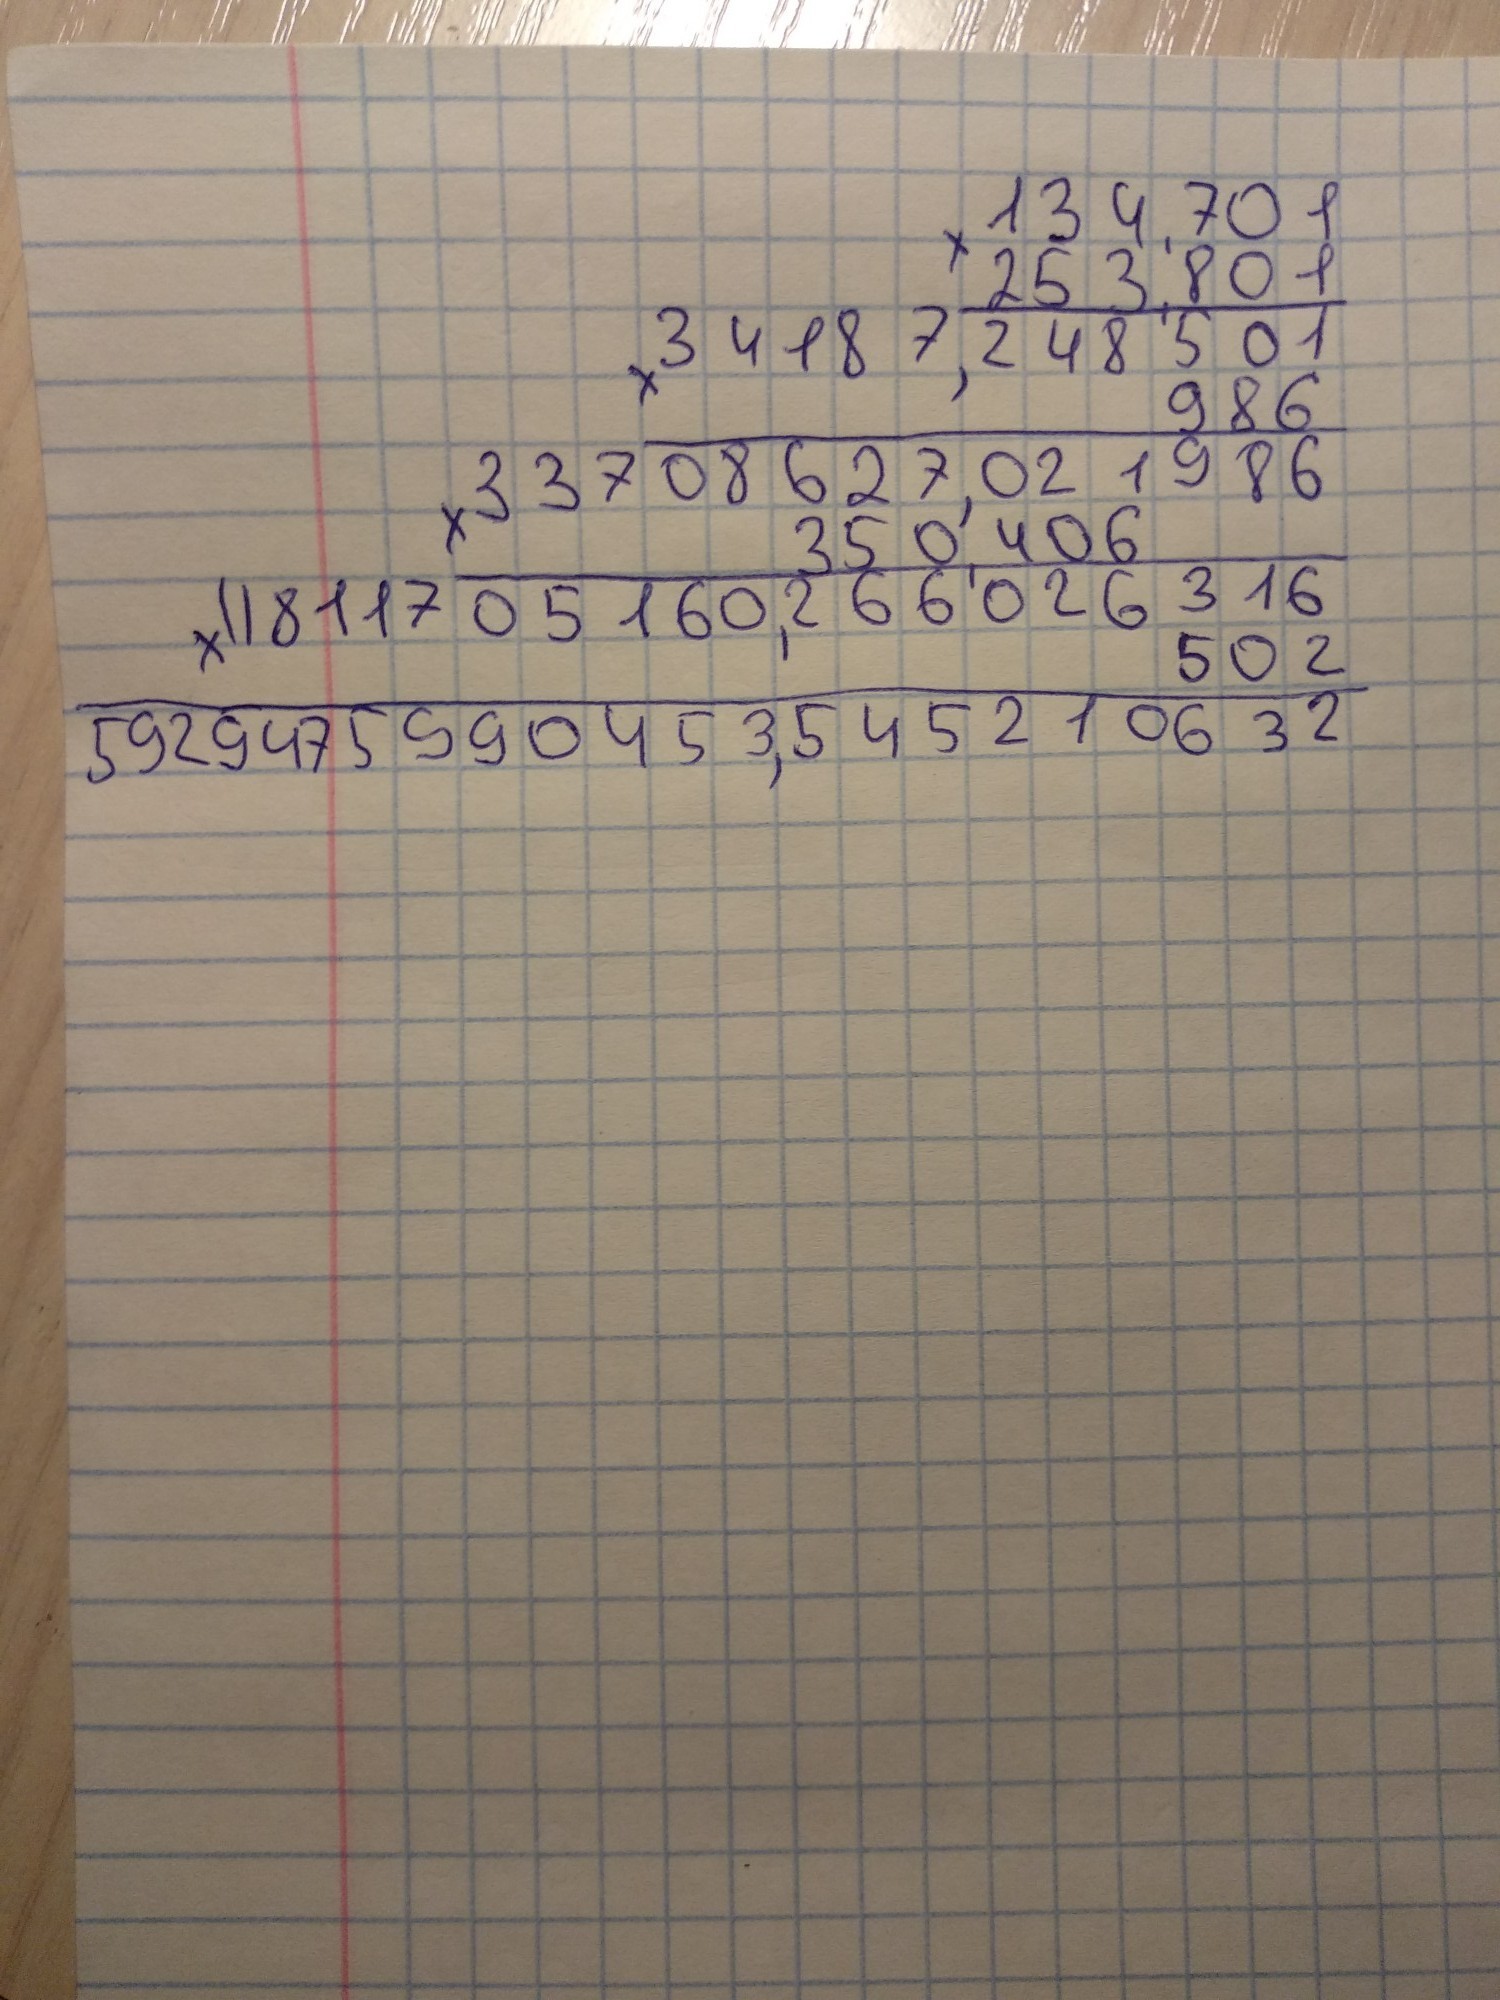 134,701
× 253,801
× 34187,248501
986
× 33708627,021986
350,406
× 11811705160,266026316
502
5929475990453,545210632